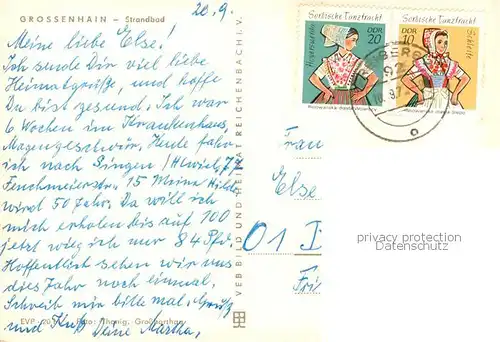 GROSSENHAIN – Strandbad
20.9.
Meine liebe Else!
Ich sende Dir viel liebe
Heimatgrüße, und hoffe
Du bist gesund. Ich war
6 Wochen im Krankenhaus,
Magengeschwür, Heute fahre
ich nach Singen
15 Meine Hilde
wird 50 Jahr. Da will ich
mich erholen bis auf 100
jetzt wieg ich nur 84 Pfd.
Hoffentlich sehen wir uns
dies Jahr noch einmal,
Schreib mir bitte mal, Gruß
und Kuß Deine Martha,
EVP
Foto: Großenhain
VEB BILD UND HEIMAT REICHENBACH I. V.
Sorbische Tanztracht
Hoyerswerda
20
DDR
Sorbische Tanztracht
Schleife
10
DDR
Frau
Else
privacy protection
www.ansichtskarten-center.de